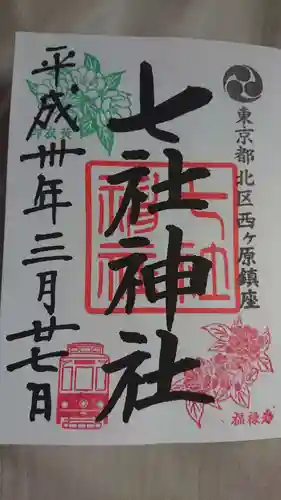 東京都北区西ヶ原鎮座
七社神社
七社神社
平成丗年三月廿七日
福禄寿